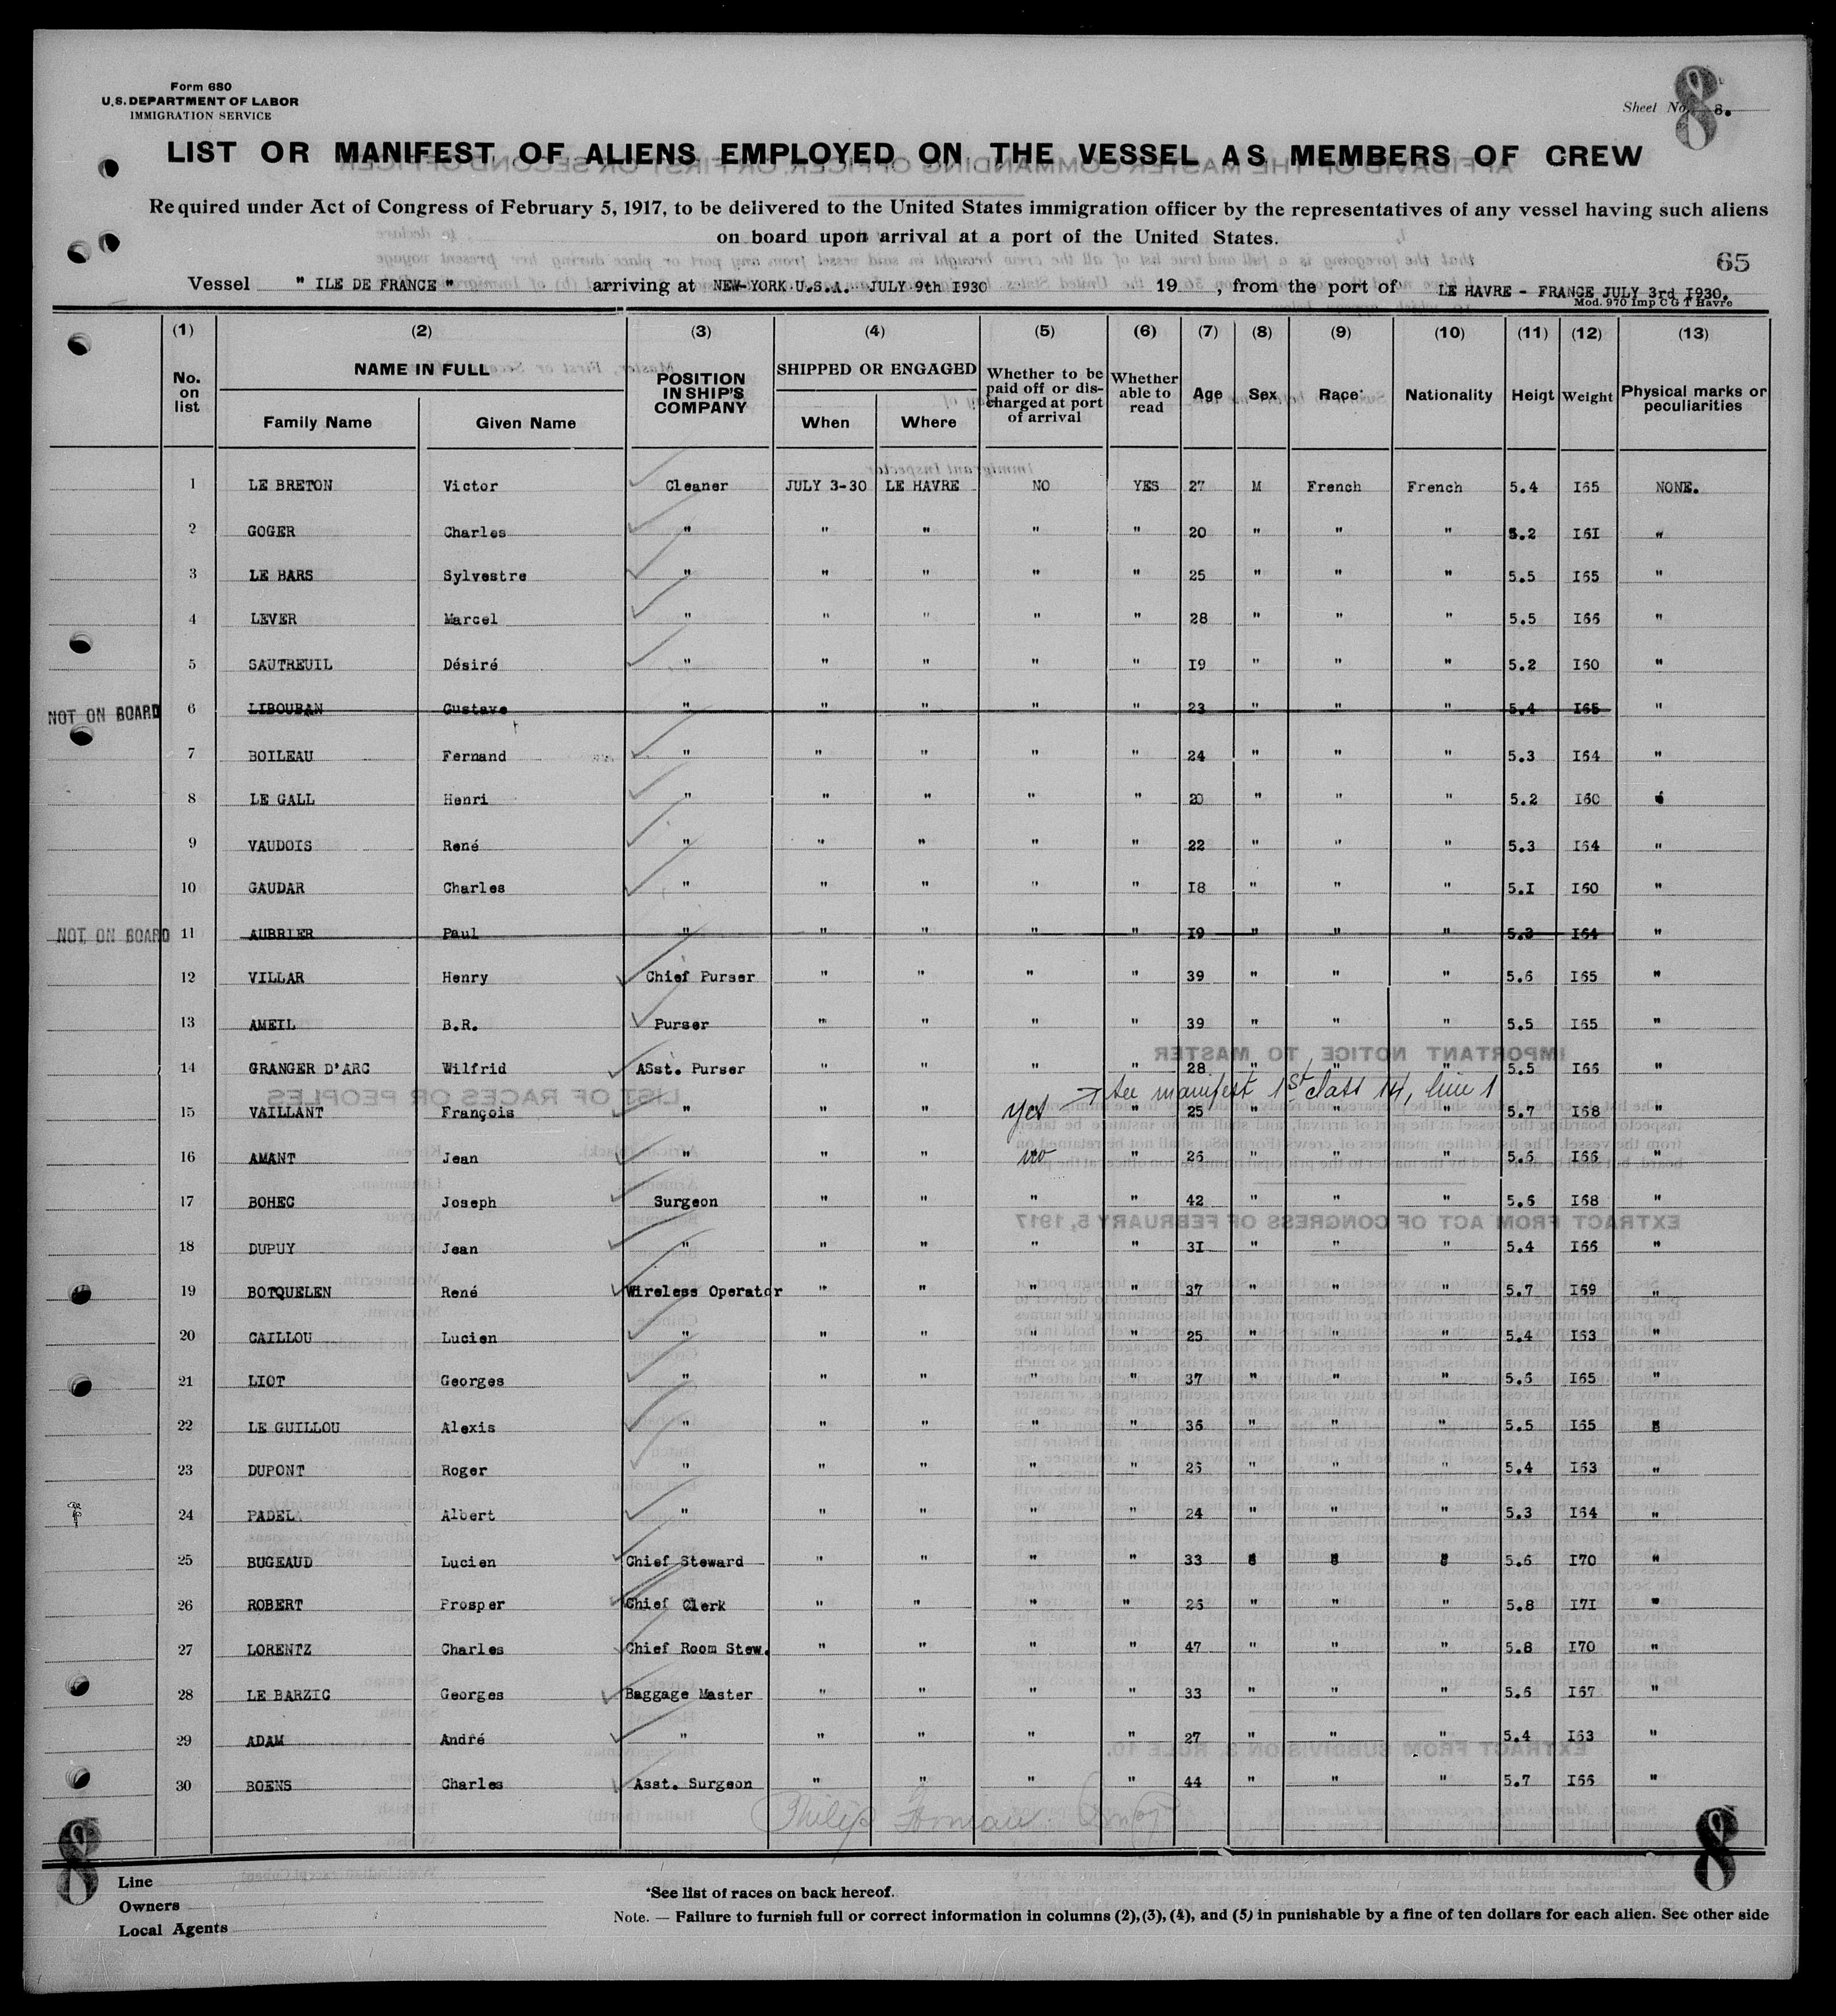 Form 680
U.S. DEPARTMENT OF LABOR
IMMIGRATION SERVICE
Sheet No. 8.
8
LIST OR MANIFEST OF ALIENS EMPLOYED ON THE VESSEL AS MEMBERS OF CREW
Required under Act of Congress of February 5, 1917, to be delivered to the United States immigration officer by the representatives of any vessel having such aliens
on board upon arrival at a port of the United States.
65
Vessel " ILE DE FRANCE " arriving at NEW-YORK U.S.A. JULY 9th I930 19 , from the port of LE HAVRE - FRANCE JULY 3rd I930.
Mod. 970 Imp C G T Havre
(1) (2) (3) (4) (5) (6) (7) (8) (9) (10) (11) (12) (13)
No. on list NAME IN FULL Family Name Given Name POSITION IN SHIP'S COMPANY SHIPPED OR ENGAGED When Where Whether to be paid off or discharged at port of arrival Whether able to read Age Sex Race* Nationality Heigt Weight Physical marks or peculiarities
1 LE BRETON Victor Cleaner JULY 3-30 LE HAVRE NO YES 27 M French French 5.4 I65 NONE.
2 GOGER Charles " " " " " 20 " " " 5.2 I6I "
3 LE BARS Sylvestre " " " " " 25 " " " 5.5 I65 "
4 LEVER Marcel " " " " " 28 " " " 5.5 I66 "
5 SAUTREUIL Désiré " " " " " I9 " " " 5.2 I60 "
NOT ON BOARD 6 LIBOUBAN Gustave " " " " " 23 " " " 5.4 I65 "
7 BOILEAU Fernand " " " " " 24 " " " 5.3 I64 "
8 LE GALL Henri " " " " " 20 " " " 5.2 I60 "
9 VAUDOIS René " " " " " 22 " " " 5.3 I64 "
10 GAUDAR Charles " " " " " I8 " " " 5.I I60 "
NOT ON BOARD 11 AUBRIER Paul " " " " " I9 " " " 5.3 I64 "
12 VILLAR Henry Chief Purser " " " " 39 " " " 5.6 I65 "
13 AMEIL B.R. Purser " " " " 39 " " " 5.5 I65 "
14 GRANGER D'ARC Wilfrid ASst. Purser " " " " 28 " " " 5.5 I66 "
see manifest 1st class 14, line 1
15 VAILLANT François " " " yes " 25 5.7 I68 "
16 AMANT Jean " " " no " 26 " " " 5.6 I66 "
17 BOHEC Joseph Surgeon " " " " 42 " " " 5.6 I68 "
18 DUPUY Jean " " " " " 3I " " " 5.4 I66 "
19 BOTQUELEN René Wireless Operator " " " " 37 " " " 5.7 I69 "
20 CAILLOU Lucien " " " " " 25 " " " 5.4 I63 "
21 LIOT Georges " " " " " 37 " " " 5.6 I65 "
22 LE GUILLOU Alexis " " " " " 36 " " " 5.5 I65 "
23 DUPONT Roger " " " " " 26 " " " 5.4 I63 "
24 PADEL Albert " " " " " 24 " " " 5.3 I64 "
25 BUGEAUD Lucien Chief Steward " " " " 33 " " " 5.6 I70 "
26 ROBERT Prosper Chief Clerk " " " " 26 " " " 5.8 I7I "
27 LORENTZ Charles Chief Room Stew. " " " " 47 " " " 5.8 I70 "
28 LE BARZIC Georges Baggage Master " " " " 33 " " " 5.6 I67 "
29 ADAM André " " " " " 27 " " " 5.4 I63 "
30 BOENS Charles Asst. Surgeon " " " " 44 " " " 5.7 I66 "
Philip
8 8
Line
Owners
Local Agents
*See list of races on back hereof.
Note. — Failure to furnish full or correct information in columns (2),(3), (4), and (5) in punishable by a fine of ten dollars for each alien. See other side